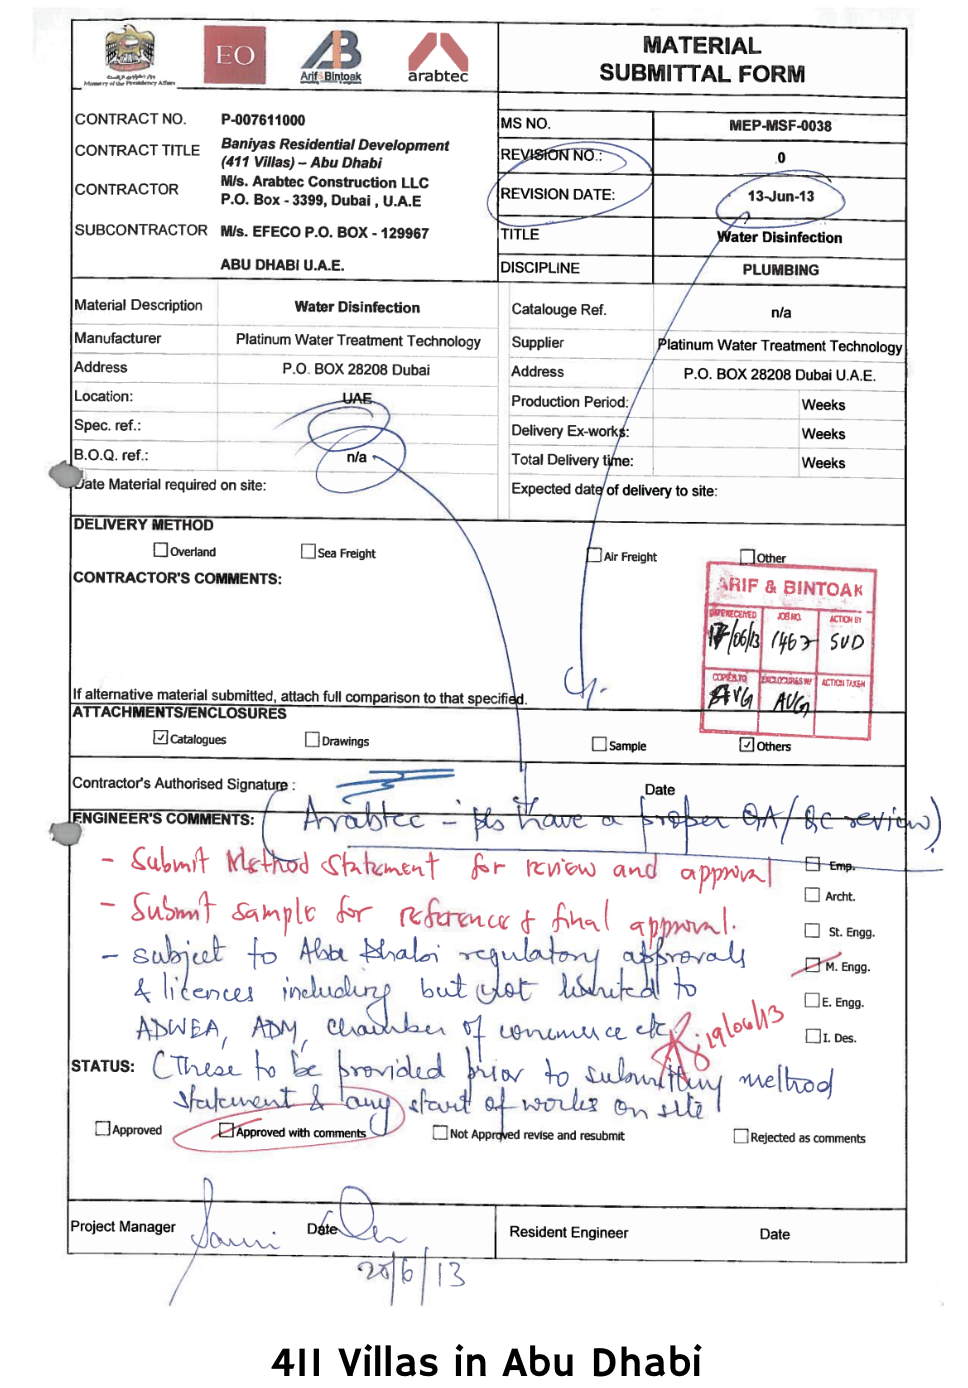 EO
Arif & Bintoak
arabtec
Ministry of the Presidency Affairs
MATERIAL
SUBMITTAL FORM
CONTRACT NO. P-007611000
CONTRACT TITLE Baniyas Residential Development
(411 Villas) – Abu Dhabi
CONTRACTOR M/s. Arabtec Construction LLC
P.O. Box - 3399, Dubai , U.A.E
SUBCONTRACTOR M/s. EFECO P.O. BOX - 129967
ABU DHABI U.A.E.
MS NO. MEP-MSF-0038
REVISION NO.: 0
REVISION DATE: 13-Jun-13
TITLE Water Disinfection
DISCIPLINE PLUMBING
Material Description Water Disinfection
Manufacturer Platinum Water Treatment Technology
Address P.O. BOX 28208 Dubai
Location: UAE
Spec. ref.:
B.O.Q. ref.: n/a
Date Material required on site:
Catalouge Ref. n/a
Supplier Platinum Water Treatment Technology
Address P.O. BOX 28208 Dubai U.A.E.
Production Period: Weeks
Delivery Ex-works: Weeks
Total Delivery time: Weeks
Expected date of delivery to site:
DELIVERY METHOD
Overland Sea Freight Air Freight Other
CONTRACTOR'S COMMENTS:
ARIF & BINTOAK
DATE RECEIVED JOB NO. ACTION BY
17/06/13 1467 SUD
COPIES TO ENCLOSURES W/ ACTION TAKEN
AVG AVG
If alternative material submitted, attach full comparison to that specified.
ATTACHMENTS/ENCLOSURES
Catalogues Drawings Sample Others
Contractor's Authorised Signature : Date
ENGINEER'S COMMENTS: (Arabtec - pls have a proper QA/QC review)
- Submit Method Statement for review and approval
- Submit sample for reference & final approval.
- subject to Abu Dhabi regulatory approvals
& licences including but not limited to
ADWEA, ADM, chamber of commerce etc
19/06/13
Emp.
Archt.
St. Engg.
M. Engg.
E. Engg.
I. Des.
STATUS: (These to be provided prior to submitting method
statement & any start of works on site
Approved Approved with comments Not Approved revise and resubmit Rejected as comments
Project Manager Date
20/6/13
Resident Engineer Date
411 Villas in Abu Dhabi